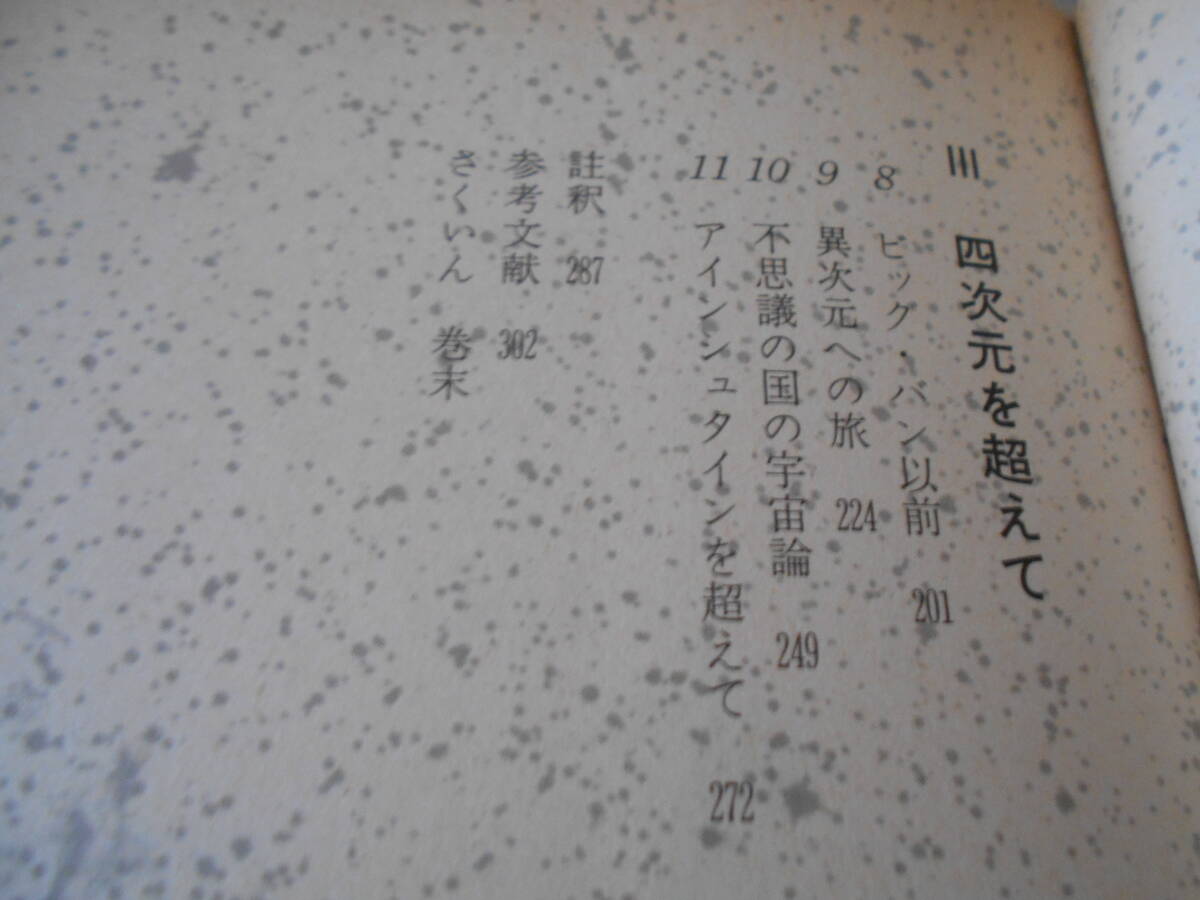 III 四次元を超えて
8 ビッグ・バン以前 201
9 異次元への旅 224
10 不思議の国の宇宙論 249
11 アインシュタインを超えて 272
註釈 287
参考文献 302
さくいん 巻末